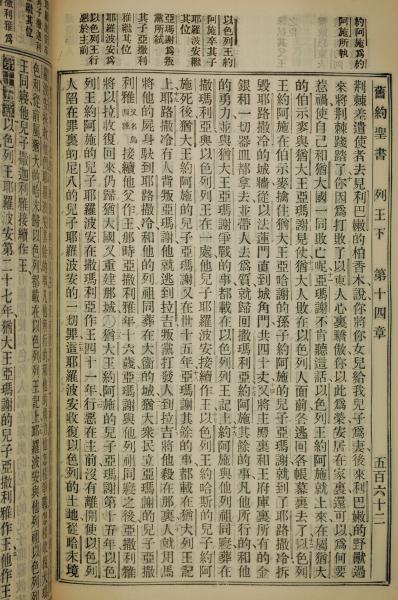 舊約聖書 列王下 第十四章 五百六十二
阿施所執
阿施卒其子
耶羅波安繼
其位
亞瑪謝為叛
黨所弒
其子亞撒利
雅繼其位
荊棘差遣使者去見利巴嫩的柏香木說你將你女兒給我兒子為妻後來利巴嫩的野獸過
來將荊棘踐踏了你因為打敗了以東人心裏驕傲你以此為榮安居在家裏還可以為何要
惹禍使自己和猶大國一同敗亡呢亞瑪謝不肯聽這話以色列王約阿施就上來在屬猶大
的伯示麥與猶大王亞瑪謝見仗猶大人敗在以色列人面前各逃回各帳幕裏去了以色列
王約阿施在伯示麥擒住猶大王亞哈謝的孫子約阿施的兒子亞瑪謝就到了耶路撒冷拆
毀耶路撒冷的城牆從以法蓮門直到城角門共四十丈又將主殿裏和王府庫裏所有的金
銀和一切器皿都拿去並帶人去為質就歸回撒瑪利亞約阿施其餘的事凡他所行的和他
的勇力並與猶大王亞瑪謝爭戰的事都載在以色列列王記上約阿施與他列祖同寢葬在
撒瑪利亞與以色列列王在一處他兒子耶羅波安接續作王以色列王約哈斯的兒子約阿
施死後猶大王約阿施的兒子亞瑪謝又在世十五年亞瑪謝其餘的事都載在猶大列王記
上耶路撒冷有人背叛亞瑪謝他就逃到拉吉叛黨打發人到拉吉將他殺在那裏人就用馬
將他的屍身馱到耶路撒冷和他的列祖同葬在大衛的城猶大衆民立亞瑪謝的兒子亞撒
利雅又名烏西雅接續他父作王那時亞撒利雅年十六歲亞瑪謝與他列祖同寢之後亞撒利雅
將以拉收復回來仍歸猶大國又重建那城○猶大王約阿施的兒子亞瑪謝第十五年以色
列王約阿施的兒子耶羅波安在撒瑪利亞作王四十一年行惡在主前沒有離開使以色列
人陷在罪裏的尼八的兒子耶羅波安的一切罪這耶羅波安收復以色列的土地從哈末境